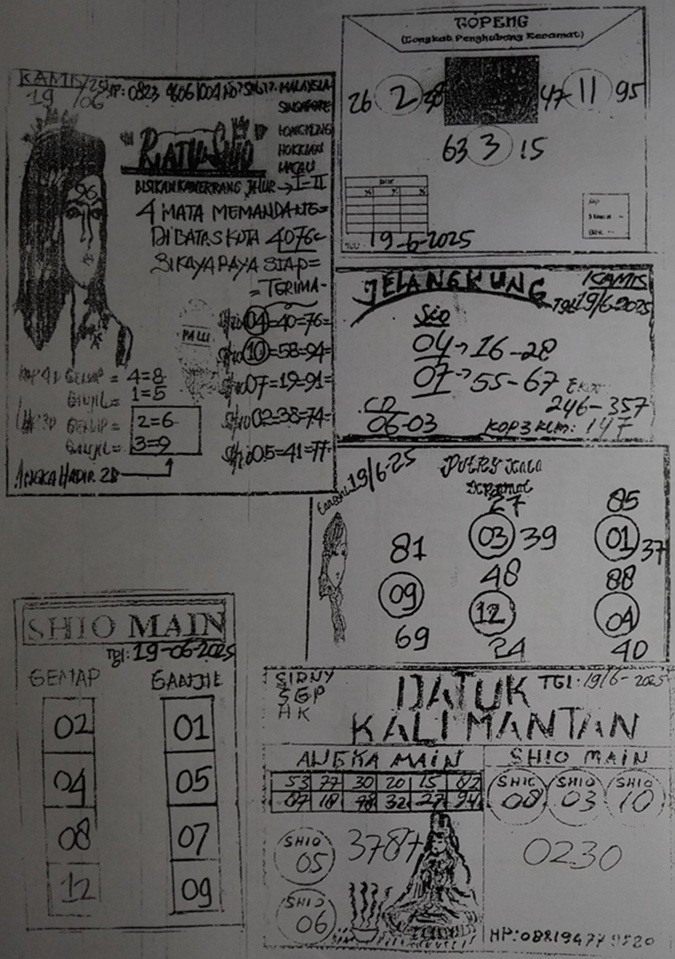 KAMIS
19/06
HP: 0823
MALAYSIA
SINGAPORE
HONGKONG
MACAU
96
RATU SHIO
I-II
4 MATA MEMANDANG=
DI BATAS KOTA 4076=
SIKAYA RAYA SIAP=
=TERIMA-
Shio 04=40=76=
Shio 10=58=94=
Shio 07=19=91=
Shio 02=38=74=
Shio 05=41=77=
4=8
1=5
GENAP = 2=6
GANJIL= 3=9
ANGKA HADIR 2D
TOPENG
(Tongkat Penghubung Keramat)
26 2 47 11 95
63 3 15
19-6-2025
JELANGKUNG
KAMIS
Tgl 19/6-2025
Sio
04 → 16-28
07 → 55-67
246-357
CD
06-03
KOP 3 KLM: 147
19/6-25
PUTRY
27
85
03 39
01 37
81
48
88
09
12
04
69
24
40
SHIO MAIN
Tgl: 19-06-2025
GENAP
GANJIL
02
01
04
05
08
07
12
09
SIDNY
SGP
HK
DATUK
TGl: 19/6-2025
KALIMANTAN
ANGKA MAIN
SHIO MAIN
53 77 30 20 15 82
87 18 98 32 27 94
SHIO 08
SHIO 03
SHIO 10
SHIO 05
3787
0230
SHIO 06